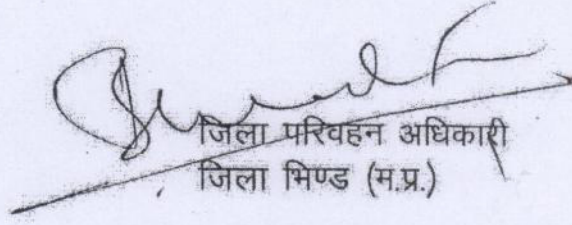 जिला परिवहन अधिकारी
जिला भिण्ड (म.प्र.)